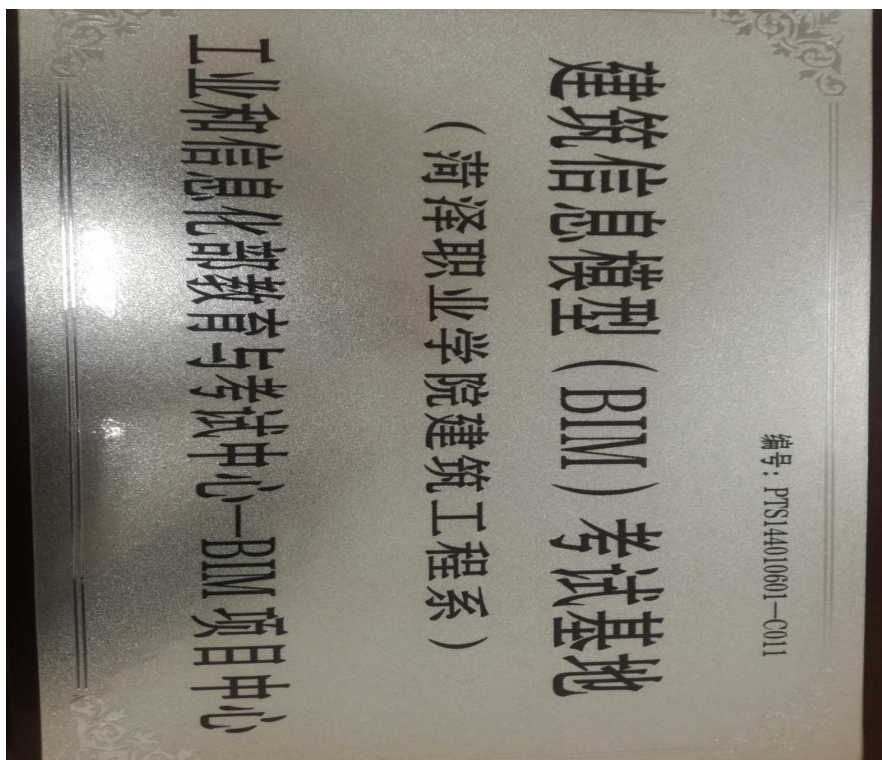 编号：PTS144010601-C011
建筑信息模型（BIM）考试基地
（菏泽职业学院建筑工程系）
工业和信息化部教育与考试中心-BIM项目中心